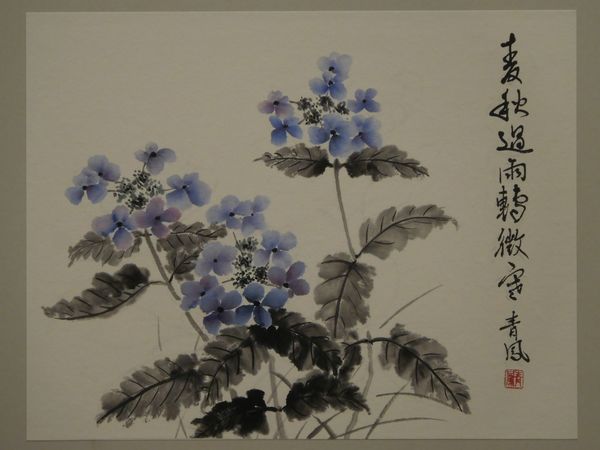 麦秋過雨轉微寒 青風